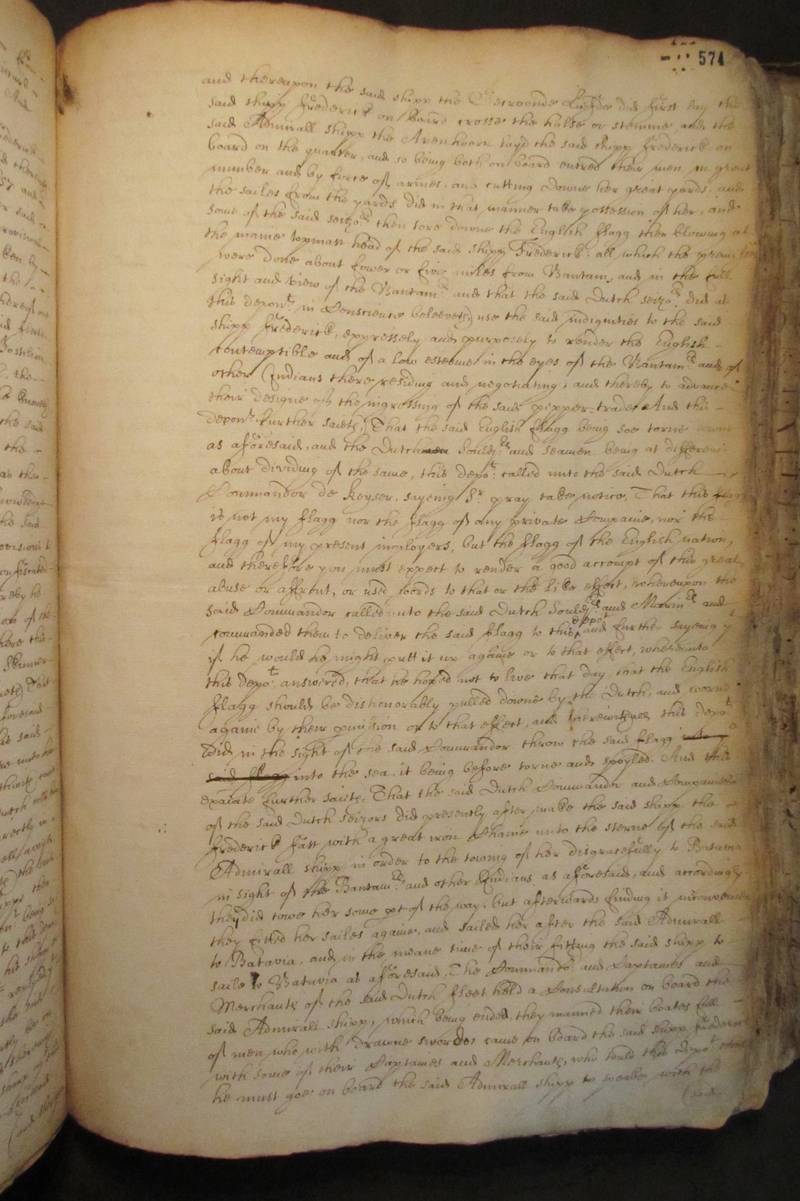 574
and thereupon the said shipp the Getroonde Liefde did first lay the
said shipp Frederick on board crosse the halse or stemme, and the
said Admirall shipp the Avenhoorn layd the said shipp Frederick on
board on the quarter, and so being both on board entred their men in great
number and by force of armes, and cutting downe her great yards, and
the sailes from the yards did in that manner take possession of her, and
some of the said seizors then tore downe the English flagg then blowing at
the maine topmast head of the said shipp Frederick, all which the premisses
were done about fower or five miles from Bantam, and in the full
sight and view of the Bantamrs and that the said Dutch seizors did as
this deponent in Conscience beleeveth use the said indignities to the said
shipp Frederick, expressely and purposely to render the English
contemptible and of a low esteeme in the eyes of the Bantamrs and of
other Indians there residing and negotiating, and thereby to advance
their designe of the ingrossing of the said pepper trade. And this
deponent further saith, That the said English flagg being soe torne downe
as aforesaid, and the Dutch Souldrs and seamen being at difference
about dividing of the same, this depot called unto the said Dutch
Commandor de Keyser, sayeing Sr pray take notice, That this flagg
is not my flagg nor the flagg of any private Companie, nor the
flagg of my present imployers, but the flagg of the English nation,
and therefore you must expect to render a good accompt of this great
abuse or affront, or used words to that or the like effect, whereupon the
said Commandor called unto the said Dutch Souldrs and Marinrs and
commanded them to deliver the said flagg to this depot and further sayeing
if he would he might putt it up againe or to that effect, whereunto
this depot answered, that he hoped not to live that day that the English
flagg should be dishonorably pulled downe by the Dutch, and worne
againe by their permission or to that effect, and this depot
did in the sight of the said Commandor throw the said flagg
said flagg into the sea, it being before torne and spoyled. And this
examinate further saith, That the said Dutch Commander and Companie
of the said Dutch seizors did presently after make the said shipp the
Frederick fast with a great iron Chaine unto the sterne of the said
Admirall shipp in order to the towing of her disgracefully to Batavia
in sight of the Bantamrs and other Indians as aforesaid, and accordingly
they did towe her some pt of the way, but afterwards finding it inconvenient
they fitted her sailes againe, and sailed her after the said Admirall
to Batavia, and in the meane time of their fitting the said shipp to
saile to Batavia as aforesaid, The Commandor and Captaines and
Merchants of the said Dutch fleet held a Consultation on board the
said Admirall shipp, which being ended, they manned their boates full
of men, who with drawne swordes came on board the said shipp Frederick
with some of their Captaines and Merchants, who tould this depot
he must goe on board the said Admirall shipp to speake with the